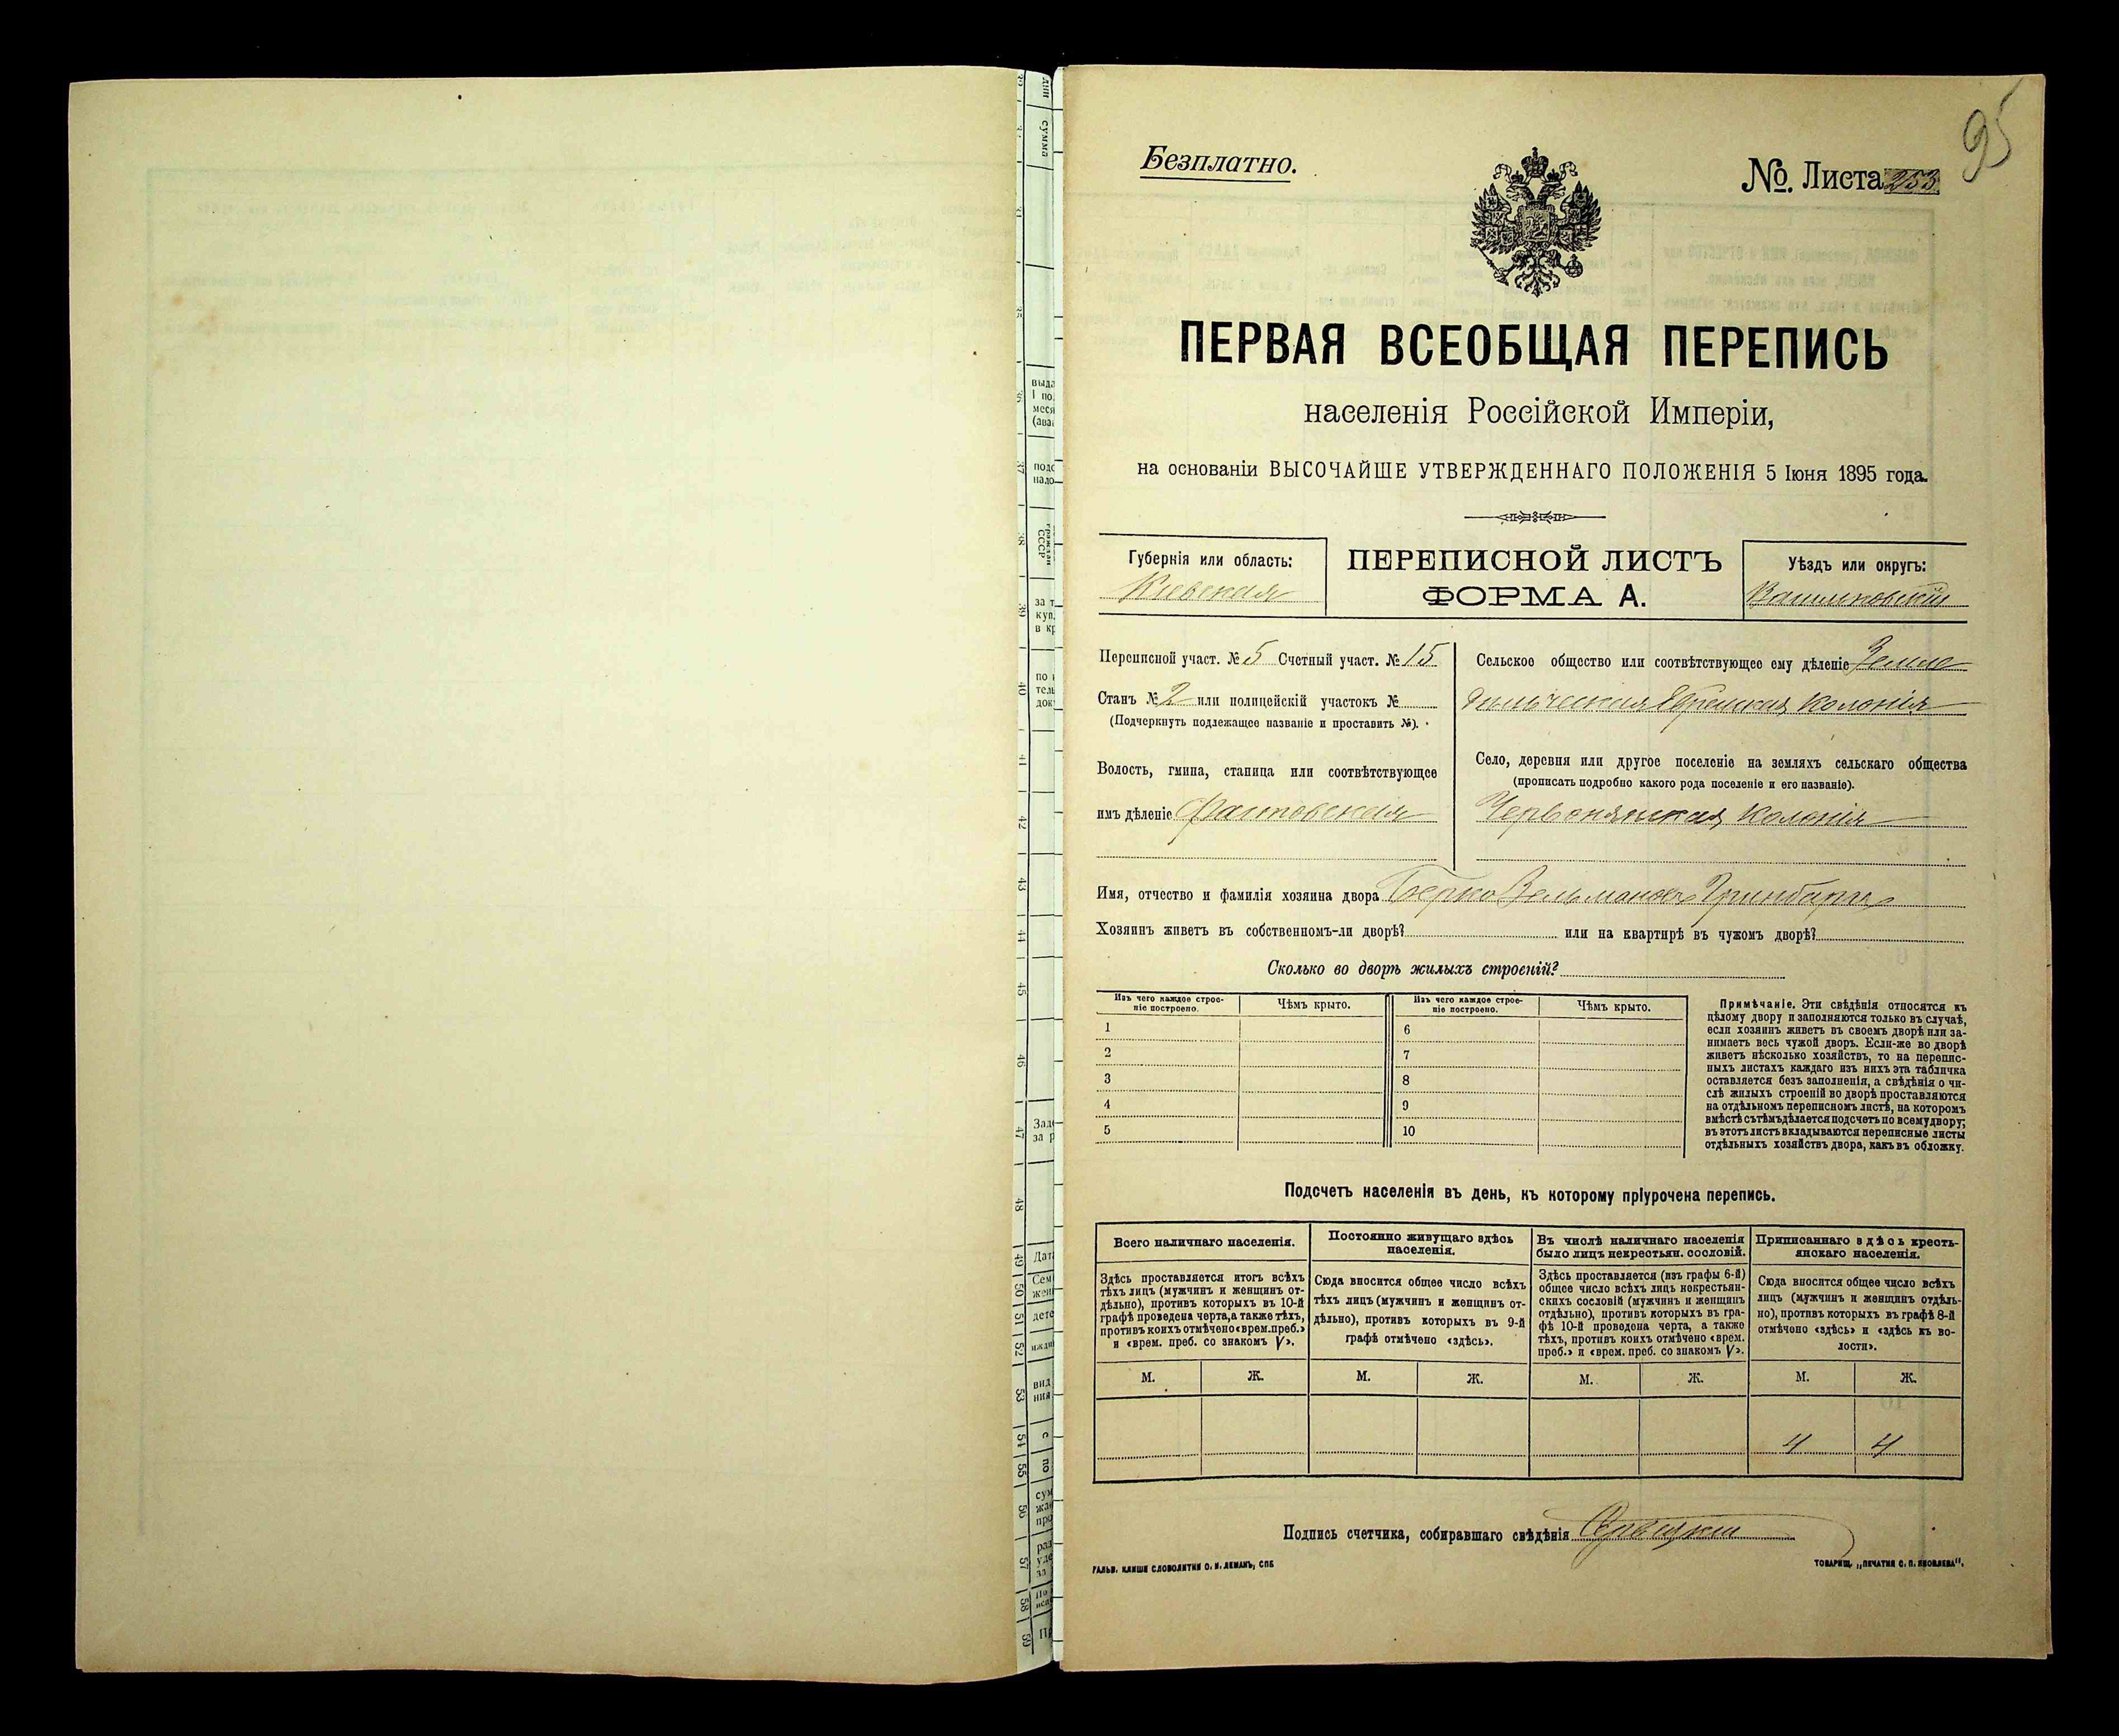 95
Безплатно.
№. Листа 253
ПЕРВАЯ ВСЕОБЩАЯ ПЕРЕПИСЬ
населенія Россійской Имперіи,
на основаніи ВЫСОЧАЙШЕ УТВЕРЖДЕННАГО ПОЛОЖЕНІЯ 5 Іюня 1895 года.
Губернія или область:
Кіевская
ПЕРЕПИСНОЙ ЛИСТЪ
ФОРМА А.
Уѣздъ или округъ:
Переписной участ. № 5 Счетный участ. № 15
Станъ № 2 или полицейскій участокъ №
(Подчеркнуть подлежащее названіе и проставить №).
Волость, гмина, станица или соотвѣтствующее
имъ дѣленіе
Сельское общество или соотвѣтствующее ему дѣленіе Земле
дѣльческая Еврейская Колонія
Село, деревня или другое поселеніе на земляхъ сельскаго общества
(прописать подробно какого рода поселеніе и его названіе).
Червонянская Колонія
Имя, отчество и фамилія хозяина двора Берко Зельмановъ Гринбаргъ
Хозяинъ живетъ въ собственномъ-ли дворѣ? или на квартирѣ въ чужомъ дворѣ?
Сколько во дворѣ жилыхъ строеній?
Изъ чего каждое строе-
ніе построено.
Чѣмъ крыто.
Изъ чего каждое строе-
ніе построено.
Чѣмъ крыто.
1
6
2
7
3
8
4
9
5
10
Примѣчаніе. Эти свѣдѣнія относятся къ
цѣлому двору и заполняются только въ случаѣ,
если хозяинъ живетъ въ своемъ дворѣ или за-
нимаетъ весь чужой дворъ. Если-же во дворѣ
живетъ нѣсколько хозяйствъ, то на перепис-
ныхъ листахъ каждаго изъ нихъ эта табличка
оставляется безъ заполненія, а свѣдѣнія о чи-
слѣ жилыхъ строеній во дворѣ проставляются
на отдѣльномъ переписномъ листѣ, на которомъ
вмѣстѣ съ тѣмъ дѣлается подсчетъ по всему двору;
въ этотъ листъ вкладываются переписные листы
отдѣльныхъ хозяйствъ двора, какъ въ обложку.
Подсчетъ населенія въ день, къ которому пріурочена перепись.
Всего наличнаго населенія.
Здѣсь проставляется итогъ всѣхъ
тѣхъ лицъ (мужчинъ и женщинъ от-
дѣльно), противъ которыхъ въ 10-й
графѣ проведена черта, а также тѣхъ,
противъ коихъ отмѣчено «врем. преб.»
и «врем. преб. со знакомъ V».
Постоянно живущаго здѣсь
населенія.
Сюда вносится общее число всѣхъ
тѣхъ лицъ (мужчинъ и женщинъ от-
дѣльно), противъ которыхъ въ 9-й
графѣ отмѣчено «здѣсь».
Въ числѣ наличнаго населенія
было лицъ некрестьян. сословій.
Здѣсь проставляется (изъ графы 6-й)
общее число всѣхъ лицъ некрестьян-
скихъ сословій (мужчинъ и женщинъ
отдѣльно), противъ которыхъ въ гра-
фѣ 10-й проведена черта, а также
тѣхъ, противъ коихъ отмѣчено «врем.
преб.» и «врем. преб. со знакомъ V».
Приписаннаго здѣсь кресть-
янскаго населенія.
Сюда вносится общее число всѣхъ
лицъ (мужчинъ и женщинъ отдѣль-
но), противъ которыхъ въ графѣ 8-й
отмѣчено «здѣсь» и «здѣсь къ во-
лости».
М. Ж. М. Ж. М. Ж. М. Ж.
4 4
Подпись счетчика, собиравшаго свѣдѣнія
ГАЛЬВ. КЛИШЕ СЛОВОЛИТНИ О. И. ЛЕМАНЪ, СПБ
ТОВАРИЩ. „ПЕЧАТНЯ С. П. ЯКОВЛЕВА".